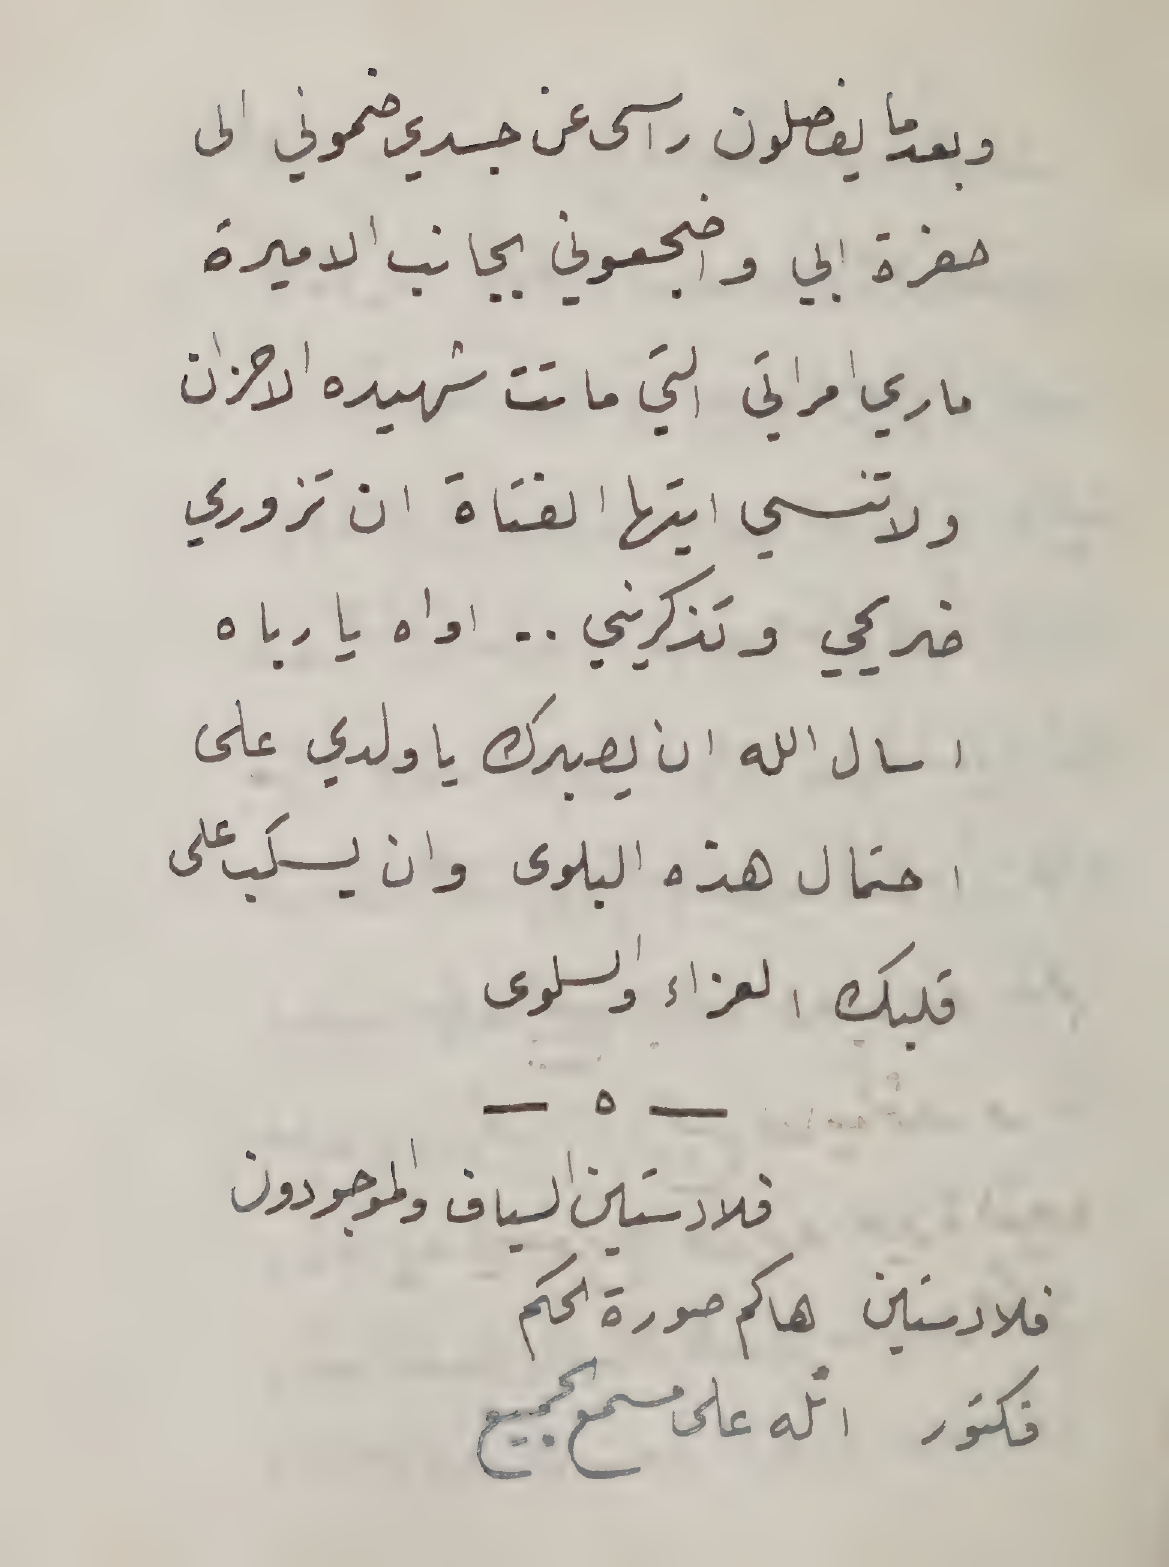 وبعدما يفصلون راسى عن جسدي ضموني الى
حفرة ابي واضجعوني بجانب الاميرة
ماري امراتي التي ماتت شهيده الاحزان
ولا تنسي ايتها الفتاة ان تزوري
ضريحي وتذكريني .. اواه يا رباه
اسال الله ان يصبرك يا ولدي على
احتمال هذه البلوى وان يسكب على
قلبك العزاء والسلوى
— ٥ —
فلادستين السياف والموجودون
فلادستين هاكم صورة الحكم
فكتور اتله على مسمع الجميع